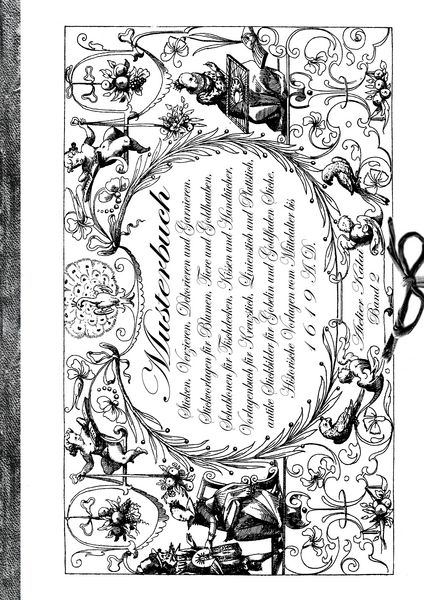 Musterbuch
Sticken, Verzieren, Dekorieren und Garnieren.
Stickvorlagen für Blumen, Tiere und Goldhauben.
Schablonen für Tischdecken, Kissen und Handtücher.
Vorlagenbuch für Kreuzstich, Linienstich und Plattstich,
antike Stickbilder für Gobelin und Goldfaden Sticke.
Historische Vorlagen vom Mittelalter bis
1619 A.D.
Band 2